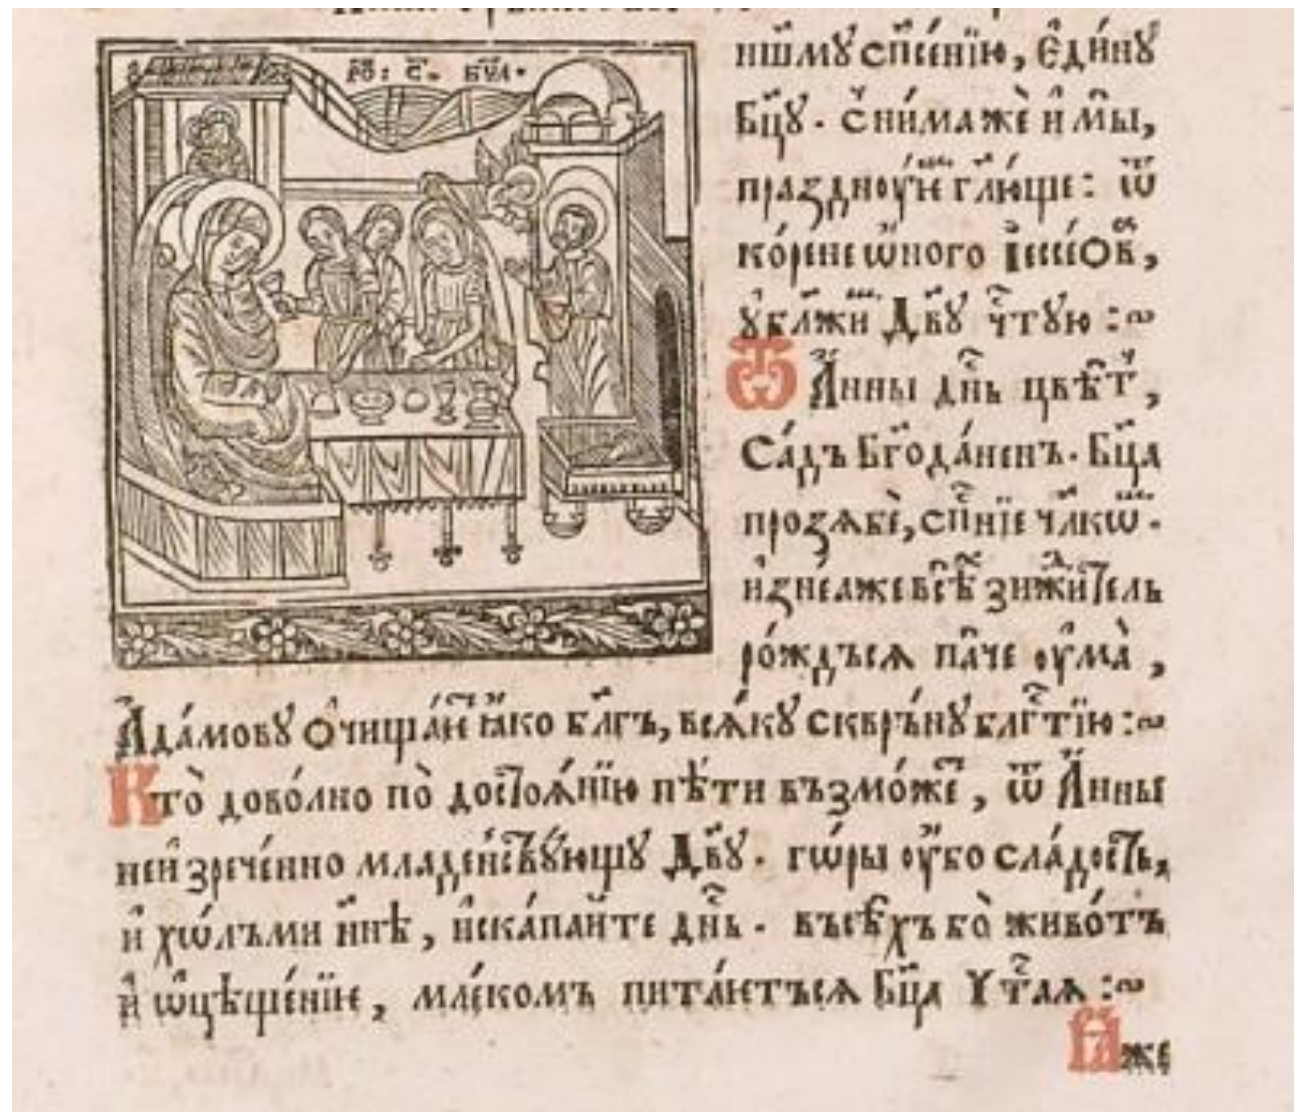 РО: С. БЦА.
нш҃му сп҃сенїю, є҆ди́ну
Бц҃у. с ни́мажѐ и҆ мы̀,
пра́зднꙋѥ гл҃юще: ѿ
ко́рене ѡ҆́ного І҆ессе́ов,
ꙋ҆бл҃жи Дв҃ꙋ чт҃ꙋю :~
Ѿ А҆́нны дн҃ь цвѣт,
са́дъ Бг҃ода́ненъ. Бц҃а
прозѧбѐ, сп҃нїе чл҃кѡ.
и҆знеѧже всѣ̑ зижи́тель
ро́ждъсѧ па́че ᲂу҆ма̀,
А҆да́мовꙋ ѻ҆чища́ѥ ꙗ҆́ко бл҃гъ, всѧ́кꙋ сквръ́нꙋ блг҃тїю :~
Кто̀ дово́лно по̀ достоѧ́нїю пѣ́ти възмо́же, ѿ А҆́нны
неи҆зрече́нно младе́нствꙋ́ющꙋ Дв҃ꙋ. гѡ́ры ᲂу҆́бо сла́дость,
и҆ хѡ́лъми нн҃ѣ, и҆ска́пайте дн҃ь. въсѣ́хъ бо̀ живо́тъ
и҆ ѡ҆цѣще́нїѥ, мле́комъ пита́ѥтъсѧ Бц҃а Ꙋчт҃аѧ :~
Ꙗ҆́же